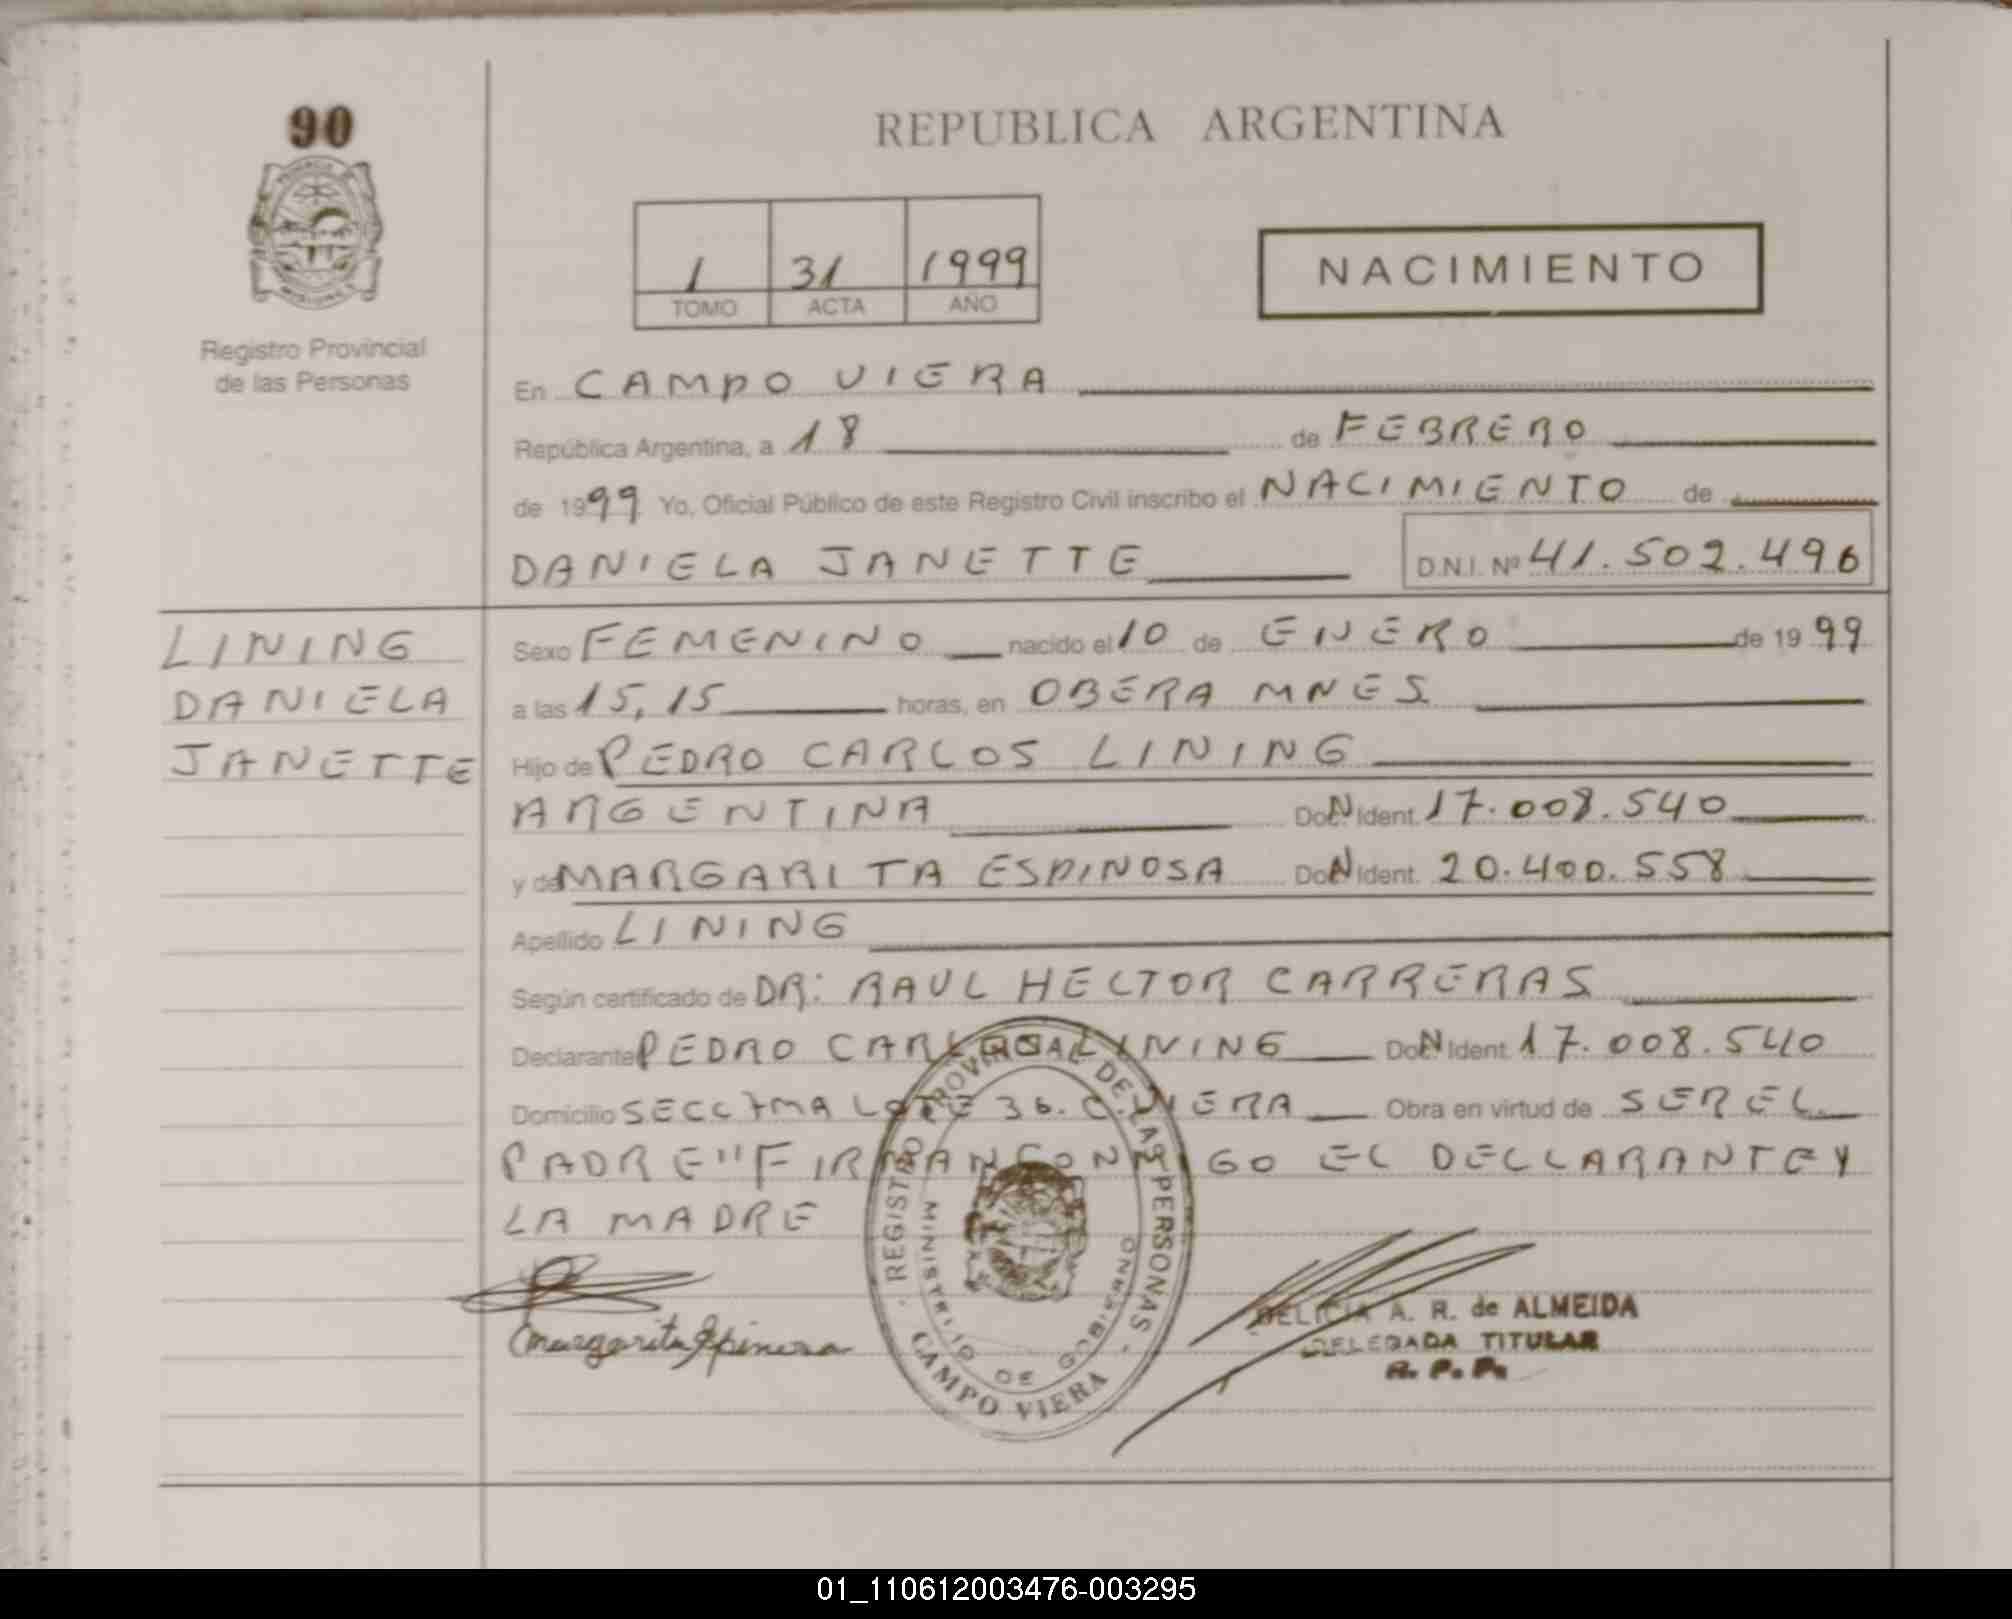 90
REPUBLICA ARGENTINA
1 31 1999
TOMO ACTA AÑO
NACIMIENTO
Registro Provincial
de las Personas
En CAMPO VIERA
República Argentina, a 18 de FEBRERO
de 1999 Yo, Oficial Público de este Registro Civil inscribo el NACIMIENTO de
DANIELA JANETTE D.N.I. Nº 41.502.496
LINING
DANIELA
JANETTE
Sexo FEMENINO nacido el 10 de ENERO de 1999
a las 15,15 horas, en OBERA MNES
Hijo de PEDRO CARLOS LINING
ARGENTINA Doc. Ident. 17.008.540
y de MARGARITA ESPINOSA Doc. Ident. 20.400.558
Apellido LINING
Según certificado de DR: RAUL HECTOR CARRERAS
Declarante PEDRO CARLOS LINING Doc. Ident. 17.008.540
Domicilio SECC 7MA LOTE 36. C. VIERA Obra en virtud de SER EL
PADRE" FIRMAN CONMIGO EL DECLARANTE Y
LA MADRE
Margarita Espinosa
REGISTRO PROVINCIAL DE LAS PERSONAS
MINISTERIO DE GOBIERNO
CAMPO VIERA
DELICIA A. R. de ALMEIDA
DELEGADA TITULAR
R. P. P.
01_110612003476-003295